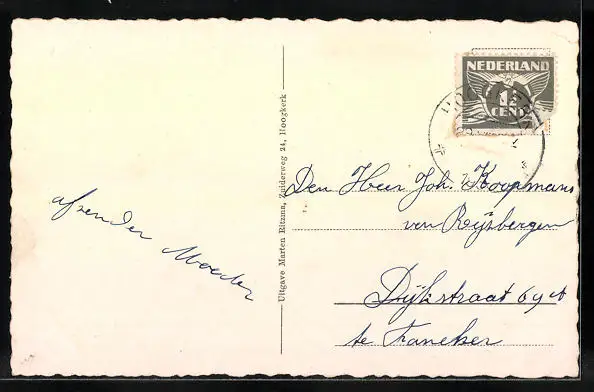 afzender Moeder
Uitgave Marten Ritzma, Zuiderweg 24, Hoogkerk
NEDERLAND
1½
CENT
Den Heer Joh. Koopmans
van Rijsbergen
Dijkstraat 69
te Franeker